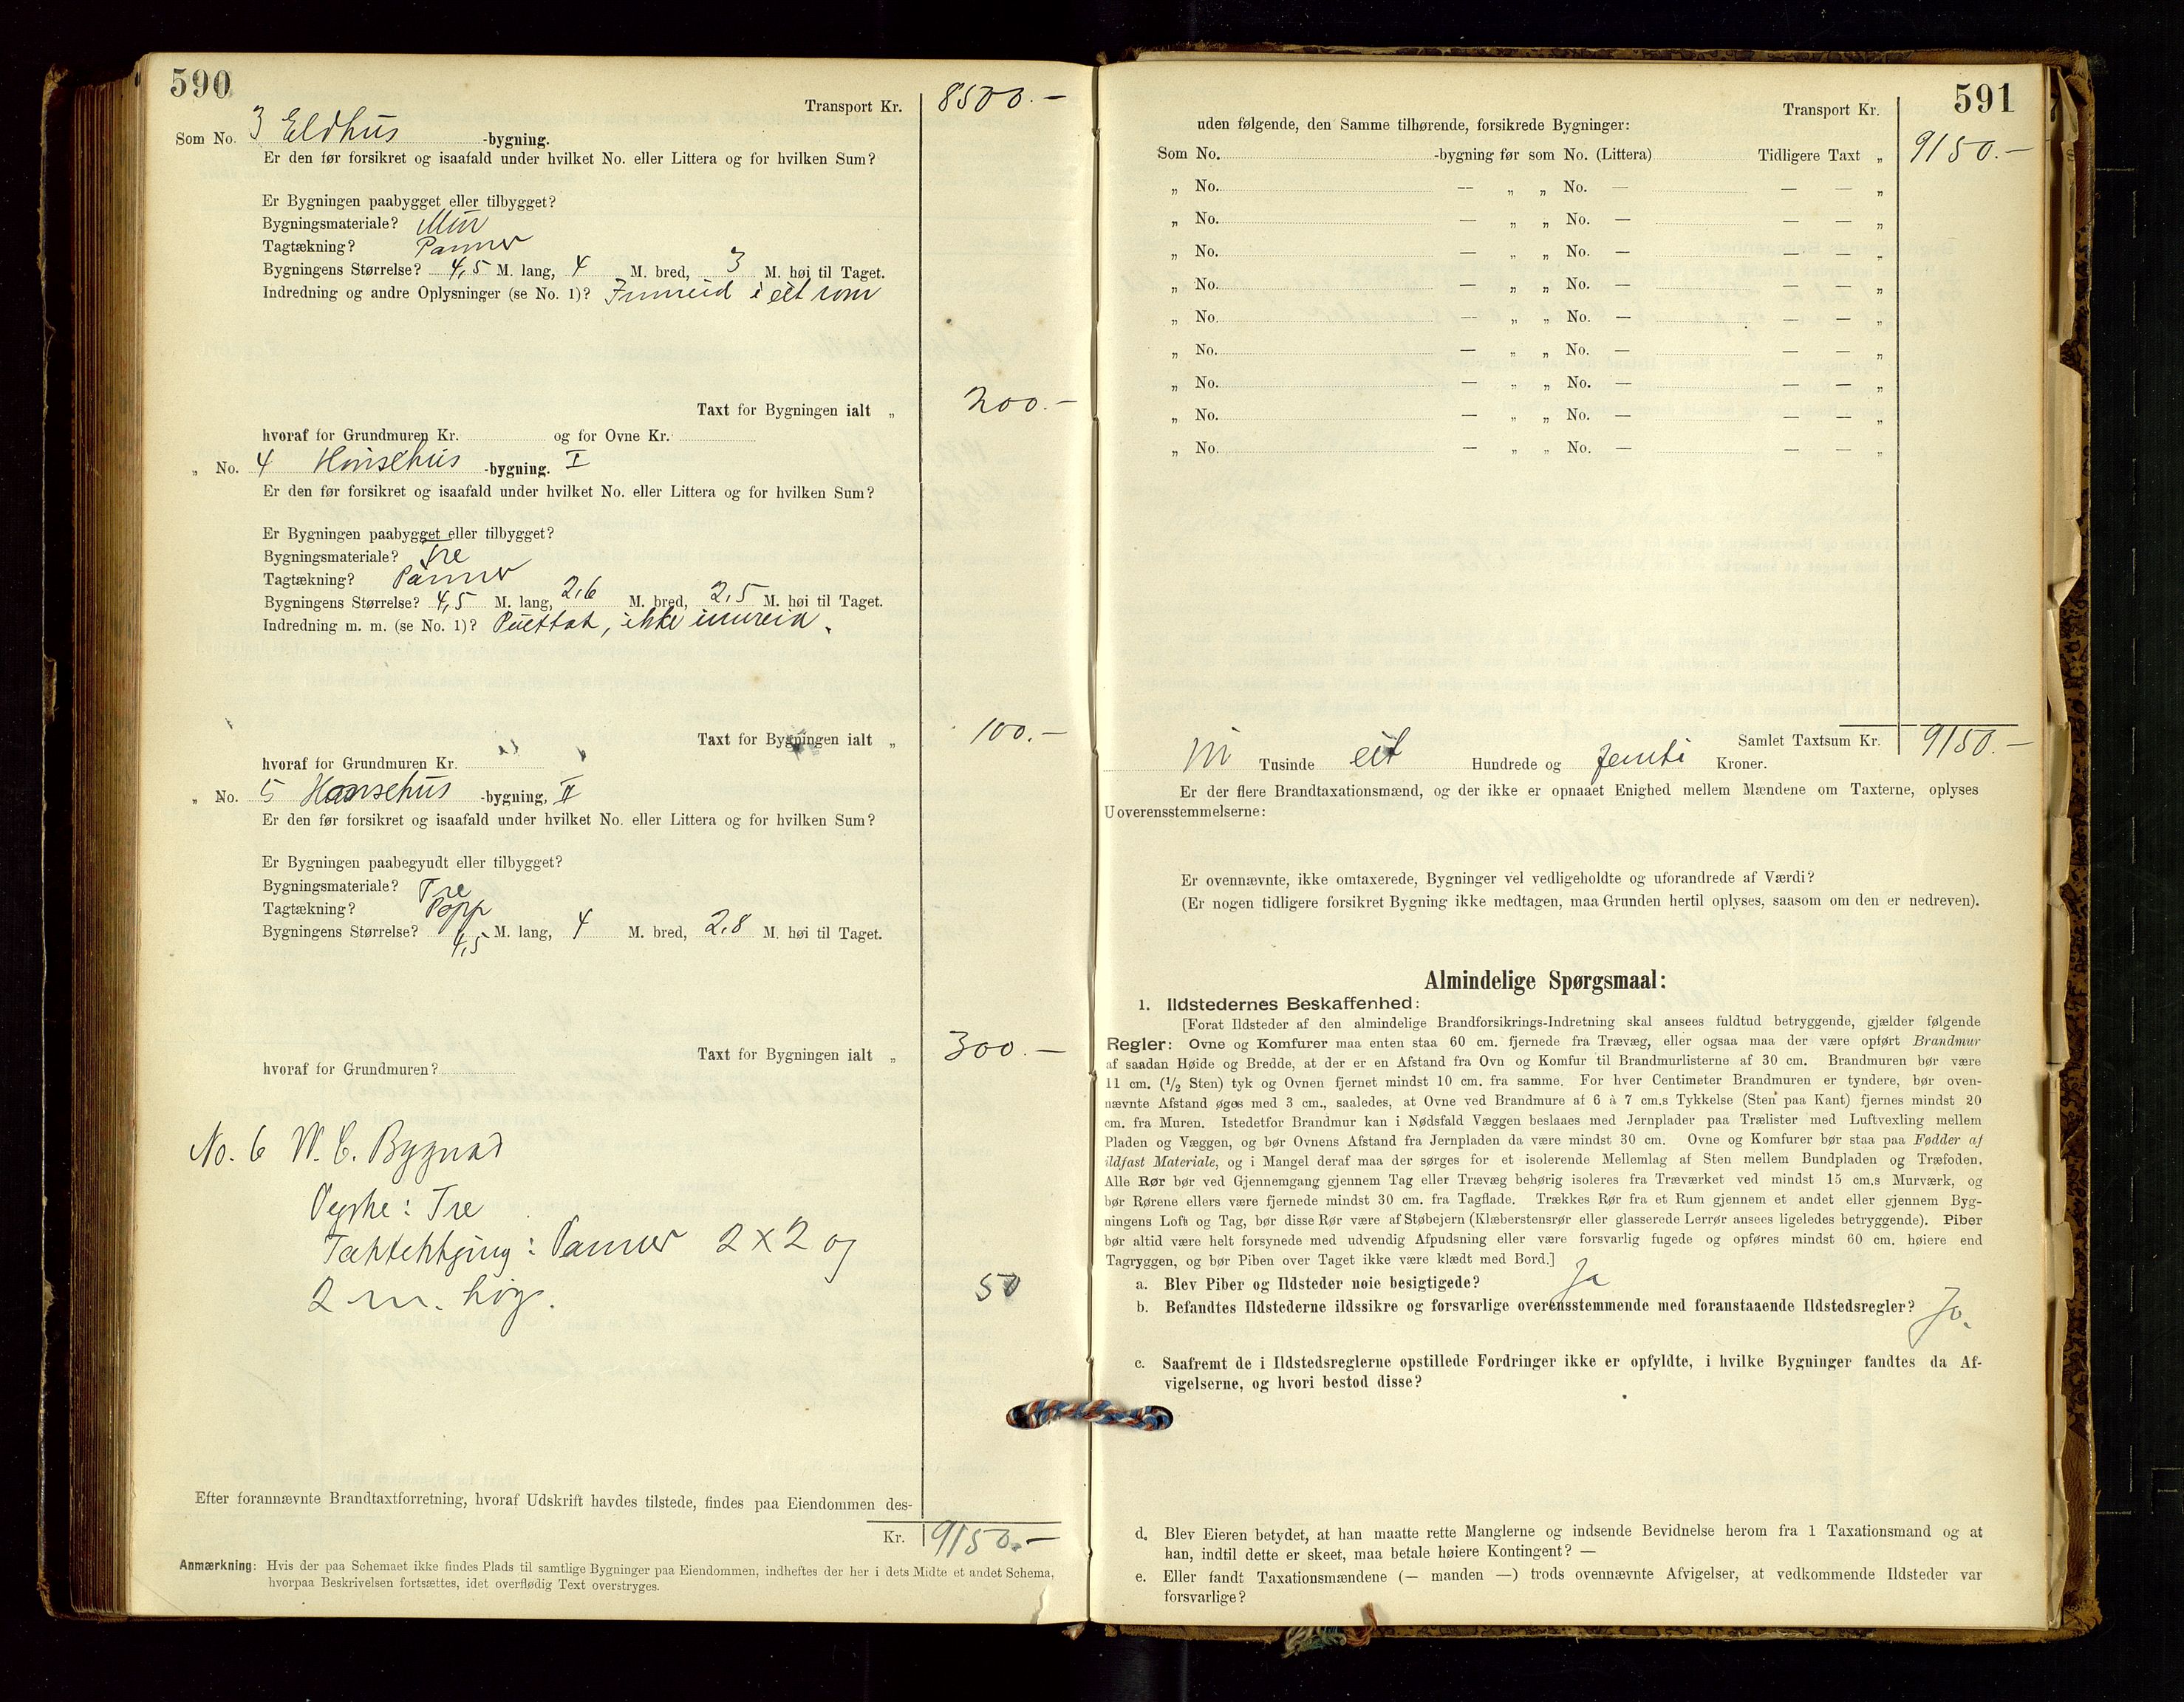 590
Transport Kr. 8500.-
Som No. 3 Eldhus -bygning.
Er den før forsikret og isaafald under hvilket No. eller Littera og for hvilken Sum?
Er Bygningen paabygget eller tilbygget?
Bygningsmateriale? Mur
Tagtækning? Panner
Bygningens Størrelse? 4,5 M. lang, 4 M. bred, 3 M. høi til Taget.
Indredning og andre Oplysninger (se No. 1)? Innreid i eit rom
Taxt for Bygningen ialt „ 200.-
hvoraf for Grundmuren Kr. og for Ovne Kr.
„ No. 4 Hønsehus -bygning. I
Er den før forsikret og isaafald under hvilket No. eller Littera og for hvilken Sum?
Er Bygningen paabygget eller tilbygget?
Bygningsmateriale? Tre
Tagtækning? Panner
Bygningens Størrelse? 4,5 M. lang, 2,6 M. bred, 2,5 M. høi til Taget.
Indredning m. m. (se No. 1)? Puettat, ikke innreid.
Taxt for Bygningen ialt „ 100.-
hvoraf for Grundmuren Kr.
„ No. 5 Hønsehus -bygning, II
Er den før forsikret og isaafald under hvilket No. eller Littera og for hvilken Sum?
Er Bygningen paabegyndt eller tilbygget?
Bygningsmateriale? Tre
Tagtækning? Papp
Bygningens Størrelse? 4,5 M. lang, 4 M. bred, 2,8 M. høi til Taget.
Taxt for Bygningen ialt „ 300.-
hvoraf for Grundmuren?
No. 6 W. C. Bygnad
Vegke: Tre
Taktekkjing: Panner 2 x 2 og
2 m. høg. 50
Efter forannævnte Brandtaxtforretning, hvoraf Udskrift havdes tilstede, findes paa Eiendommen des-
Kr. 9150.-
Anmærkning: Hvis der paa Schemaet ikke findes Plads til samtlige Bygninger paa Eiendommen, indheftes der her i dets Midte et andet Schema,
hvorpaa Beskrivelsen fortsættes, idet overflødig Text overstryges.
591
Transport Kr.
uden følgende, den Samme tilhørende, forsikrede Bygninger:
Som No. -bygning før som No. (Littera) Tidligere Taxt „ 9150.-
„ No. — „ „ No. — — — „
„ No. — „ „ No. — — — „
„ No. — „ „ No. — — — „
„ No. — „ „ No. — — — „
„ No. — „ „ No. — — — „
„ No. — „ „ No. — — — „
„ No. — „ „ No. — — — „
„ No. — „ „ No. — — — „
„ No. — „ „ No. — — — „
Samlet Taxtsum Kr. 9150.-
Ni Tusinde eit Hundrede og femti Kroner.
Er der flere Brandtaxationsmænd, og der ikke er opnaaet Enighed mellem Mændene om Taxterne, oplyses
Uoverensstemmelserne:
Er ovennævnte, ikke omtaxerede, Bygninger vel vedligeholdte og uforandrede af Værdi?
(Er nogen tidligere forsikret Bygning ikke medtagen, maa Grunden hertil oplyses, saasom om den er nedreven).
Almindelige Spørgsmaal:
1. Ildstedernes Beskaffenhed:
[Forat Ildsteder af den almindelige Brandforsikrings-Indretning skal ansees fuldtud betryggende, gjælder følgende
Regler: Ovne og Komfurer maa enten staa 60 cm. fjernede fra Trævæg, eller ogsaa maa der være opført Brandmur
af saadan Høide og Bredde, at der er en Afstand fra Ovn og Komfur til Brandmurlisterne af 30 cm. Brandmuren bør være
11 cm. (1/2 Sten) tyk og Ovnen fjernet mindst 10 cm. fra samme. For hver Centimeter Brandmuren er tyndere, bør oven-
nævnte Afstand øges med 3 cm., saaledes, at Ovne ved Brandmure af 6 à 7 cm.s Tykkelse (Sten paa Kant) fjernes mindst 20
cm. fra Muren. Istedetfor Brandmur kan i Nødsfald Væggen beslaaes med Jernplader paa Trælister med Luftvexling mellem
Pladen og Væggen, og bør Ovnens Afstand fra Jernpladen da være mindst 30 cm. Ovne og Komfurer bør staa paa Fødder af
ildfast Materiale, og i Mangel deraf maa der sørges for et isolerende Mellemlag af Sten mellem Bundpladen og Træfoden.
Alle Rør bør ved Gjennemgang gjennem Tag eller Trævæg behørig isoleres fra Træværket ved mindst 15 cm.s Murværk, og
bør Rørene ellers være fjernede mindst 30 cm. fra Tagflade. Trækkes Rør fra et Rum gjennem et andet eller gjennem Byg-
ningens Loft og Tag, bør disse Rør være af Støbejern (Klæberstensrør eller glasserede Lerrør ansees ligeledes betryggende). Piber
bør altid være helt forsynede med udvendig Afpudsning eller være forsvarlig fugede og opføres mindst 60 cm. høiere end
Tagryggen, og bør Piben over Taget ikke være klædt med Bord.]
a. Blev Piber og Ildsteder nøie besigtigede? Ja
b. Befandtes Ildstederne ildssikre og forsvarlige overensstemmende med foranstaaende Ildstedsregler? Ja.
c. Saafremt de i Ildstedsreglerne opstillede Fordringer ikke er opfyldte, i hvilke Bygninger fandtes da Af-
vigelserne, og hvori bestod disse?
d. Blev Eieren betydet, at han maatte rette Manglerne og indsende Bevidnelse herom fra 1 Taxationsmand og at
han, indtil dette er skeet, maa betale høiere Kontingent? —
e. Eller fandt Taxationsmændene (— manden —) trods ovennævnte Afvigelser, at vedkommende Ildsteder var
forsvarlige?